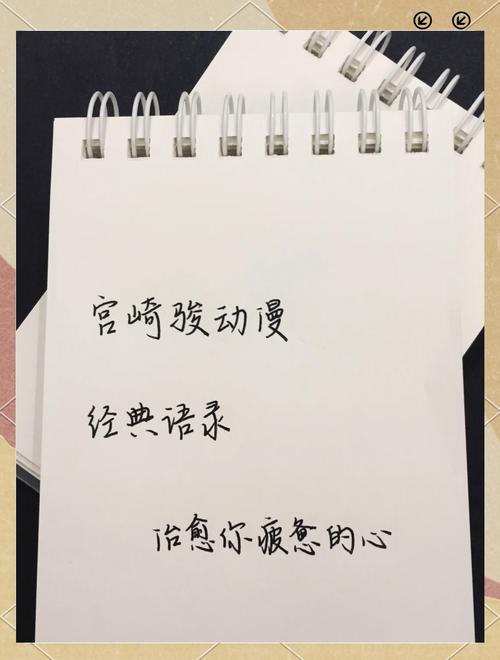 宫崎骏动漫
经典语录
治愈你疲惫的心